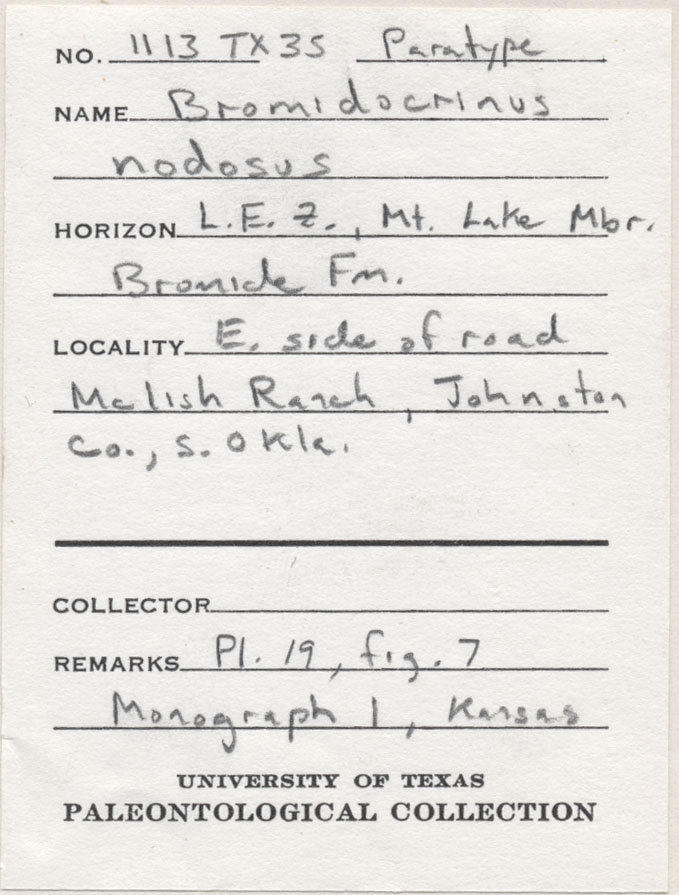 NO. 1113 TX 35 Paratype
NAME Bromidocrinus
nodosus
HORIZON L.E.Z., Mt. Lake Mbr.
Bromide Fm.
LOCALITY E. side of road
Mclish Ranch, Johnston
Co., S. Okla.
COLLECTOR
REMARKS Pl. 19, fig. 7
Monograph 1, Kansas
UNIVERSITY OF TEXAS
PALEONTOLOGICAL COLLECTION